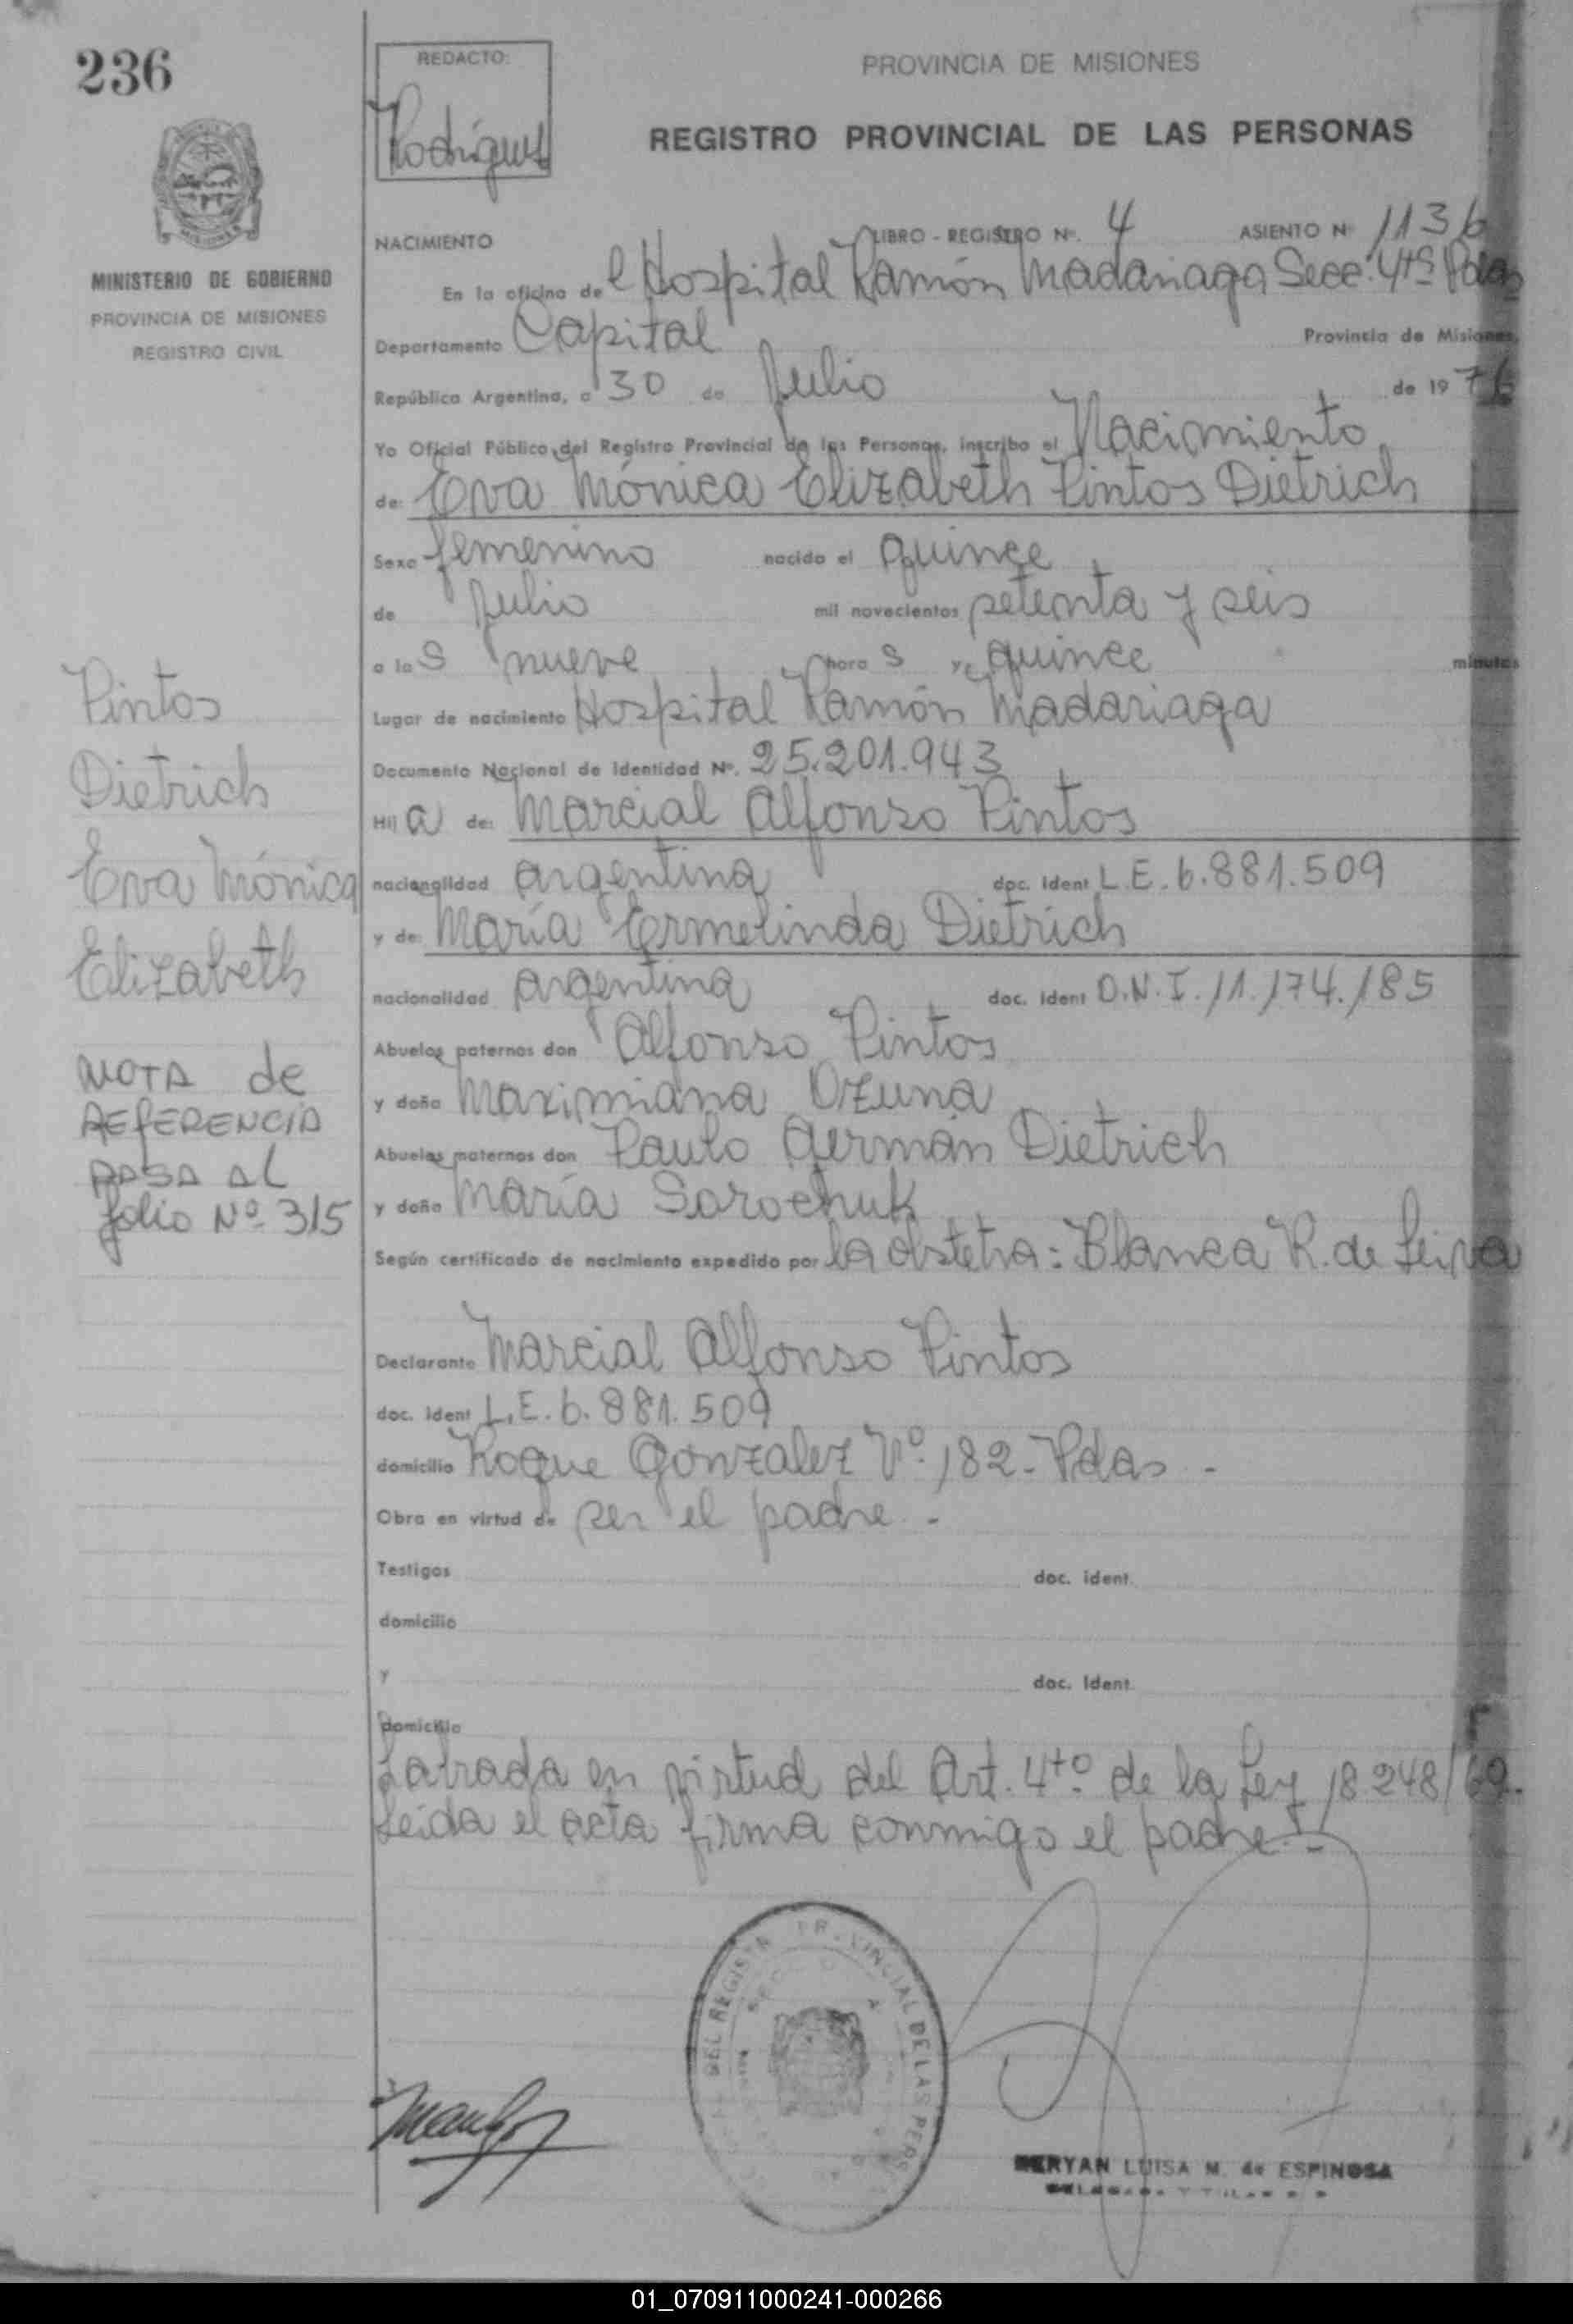 236
REDACTO:
Rodríguez
PROVINCIA DE MISIONES
REGISTRO PROVINCIAL DE LAS PERSONAS
MINISTERIO DE GOBIERNO
PROVINCIA DE MISIONES
REGISTRO CIVIL
NACIMIENTO LIBRO - REGISTRO Nº. 4 ASIENTO Nº 1136
En la oficina del Hospital Ramón Madariaga Secc. 4ta Pdas
Departamento Capital Provincia de Misiones,
República Argentina, a 30 de Julio de 1976
Yo Oficial Público del Registro Provincial de las Personas, inscribo el Nacimiento
de: Eva Mónica Elizabeth Pintos Dietrich
Sexo femenino nacido el quince
de Julio mil novecientos setenta y seis
a las nueve horas y quince minutos
Lugar de nacimiento Hospital Ramón Madariaga
Documento Nacional de Identidad Nº. 25.201.943
Hija de: Marcial Alfonso Pintos
nacionalidad argentina doc. ident L.E. 6.881.509
y de: María Ermelinda Dietrich
nacionalidad argentina doc. ident D.N.I. 11.174.185
Abuelos paternos don Alfonso Pintos
y doña Maximiana Ozuna
Abuelos maternos don Paulo Germán Dietrich
y doña María Sarochuk
Según certificado de nacimiento expedido por la obstetra: Blanca R. de Leiva
Declarante Marcial Alfonso Pintos
doc. ident L.E. 6.881.509
domicilio Roque Gonzalez Nº 182 - Pdas -
Obra en virtud de ser el padre -
Testigos doc. ident.
domicilio
y doc. ident.
domicilio
Labrada en virtud del Art. 4to. de la Ley 18248/69.
Leida el acta firma conmigo el padre. -
Pintos
Dietrich
Eva Mónica
Elizabeth
NOTA de
REFERENCIA
PASA AL
folio Nº 315
DEL REGISTRO PROVINCIAL DE LAS PERS
MERYAN LUISA M. de ESPINOSA
01_070911000241-000266